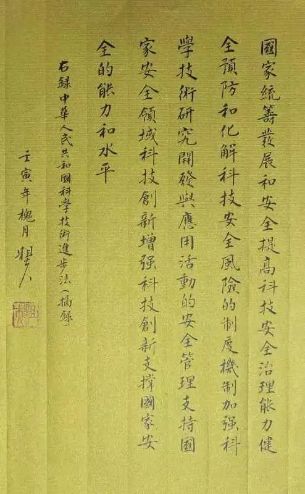 國家統籌發展和安全提高科技安全治理能力健
全預防和化解科技安全風險的制度機制加強科
學技術研究開發與應用活動的安全管理支持國
家安全領域科技創新增強科技創新支撐國家安
全的能力和水平
右錄中華人民共和國科學技術進步法（摘錄
壬寅年槐月